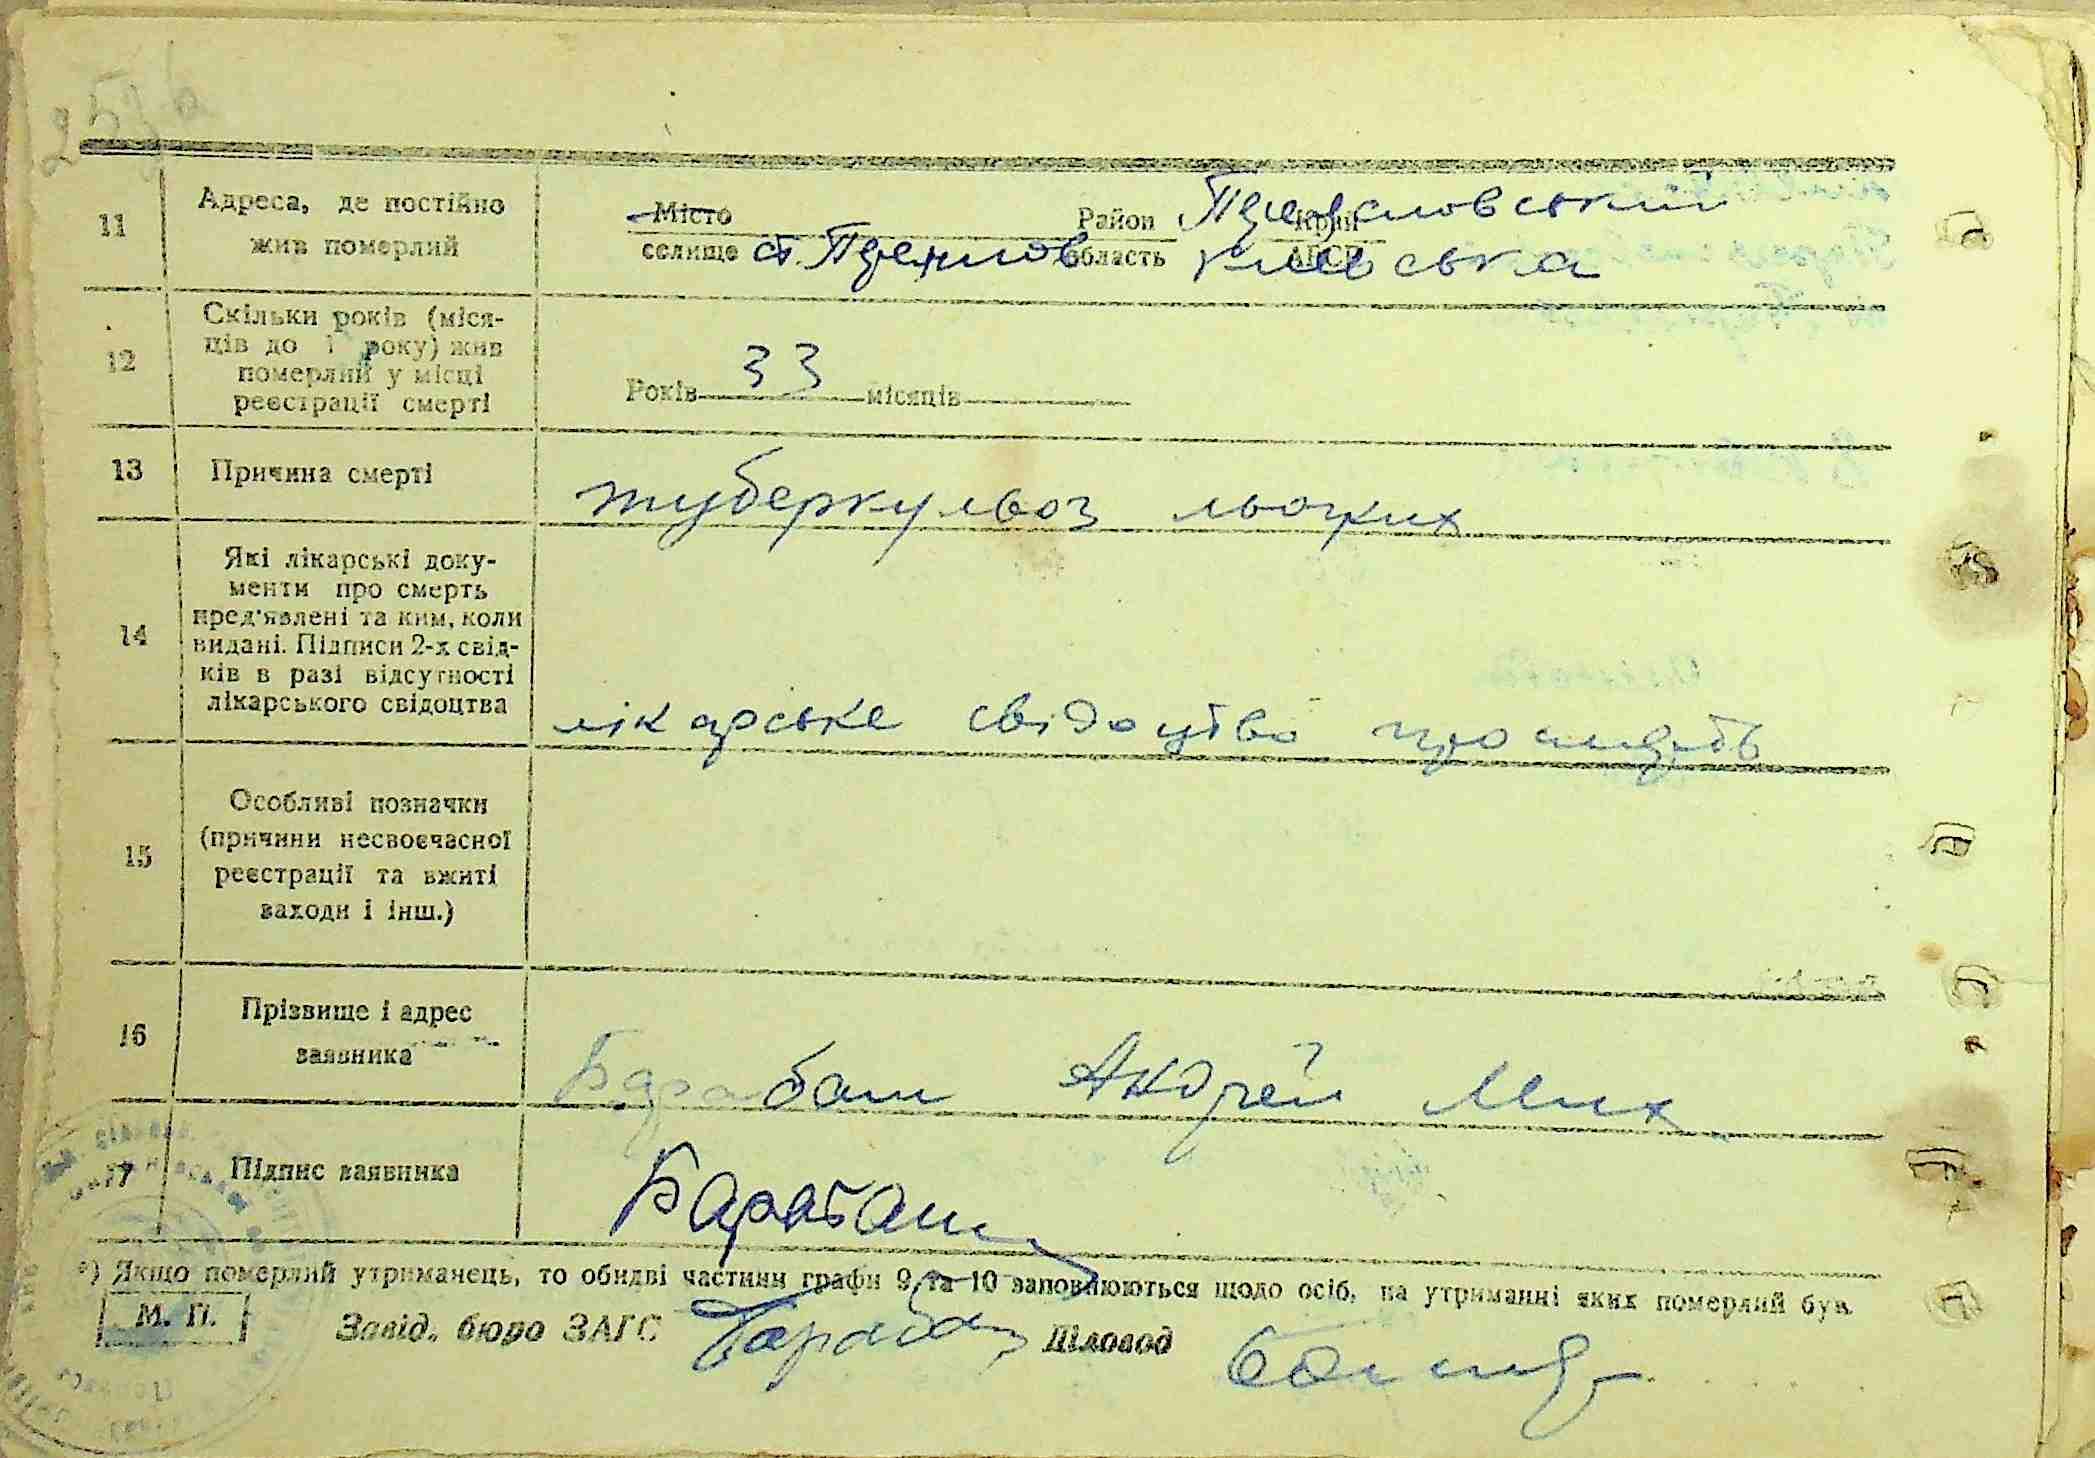 11
Адреса, де постійно
жив померлий
Місто
селище
ст.
Район
область
Край
АРСР
київська
12
Скільки років (міся-
ців до 1 року) жив
померлий у місці
реєстрації смерті
Років 33 місяців
13
Причина смерті
туберкульоз льогких
14
Які лікарські доку-
менти про смерть
пред'явлені та ким, коли
видані. Підписи 2-х свід-
ків в разі відсутності
лікарського свідоцтва
лікарське свідоцтво про смерть
15
Особливі позначки
(причини несвоєчасної
реєстрації та вжиті
заходи і інш.)
16
Прізвище і адрес
заявника
Барабаш Андрей Мих
17
Підпис заявника
Барабаш
*) Якщо померлий утриманець, то обидві частини графи 9 та 10 заповнюються щодо осіб, на утриманні яких померлий був.
М. П.
Завід. бюро ЗАГС
Діловод